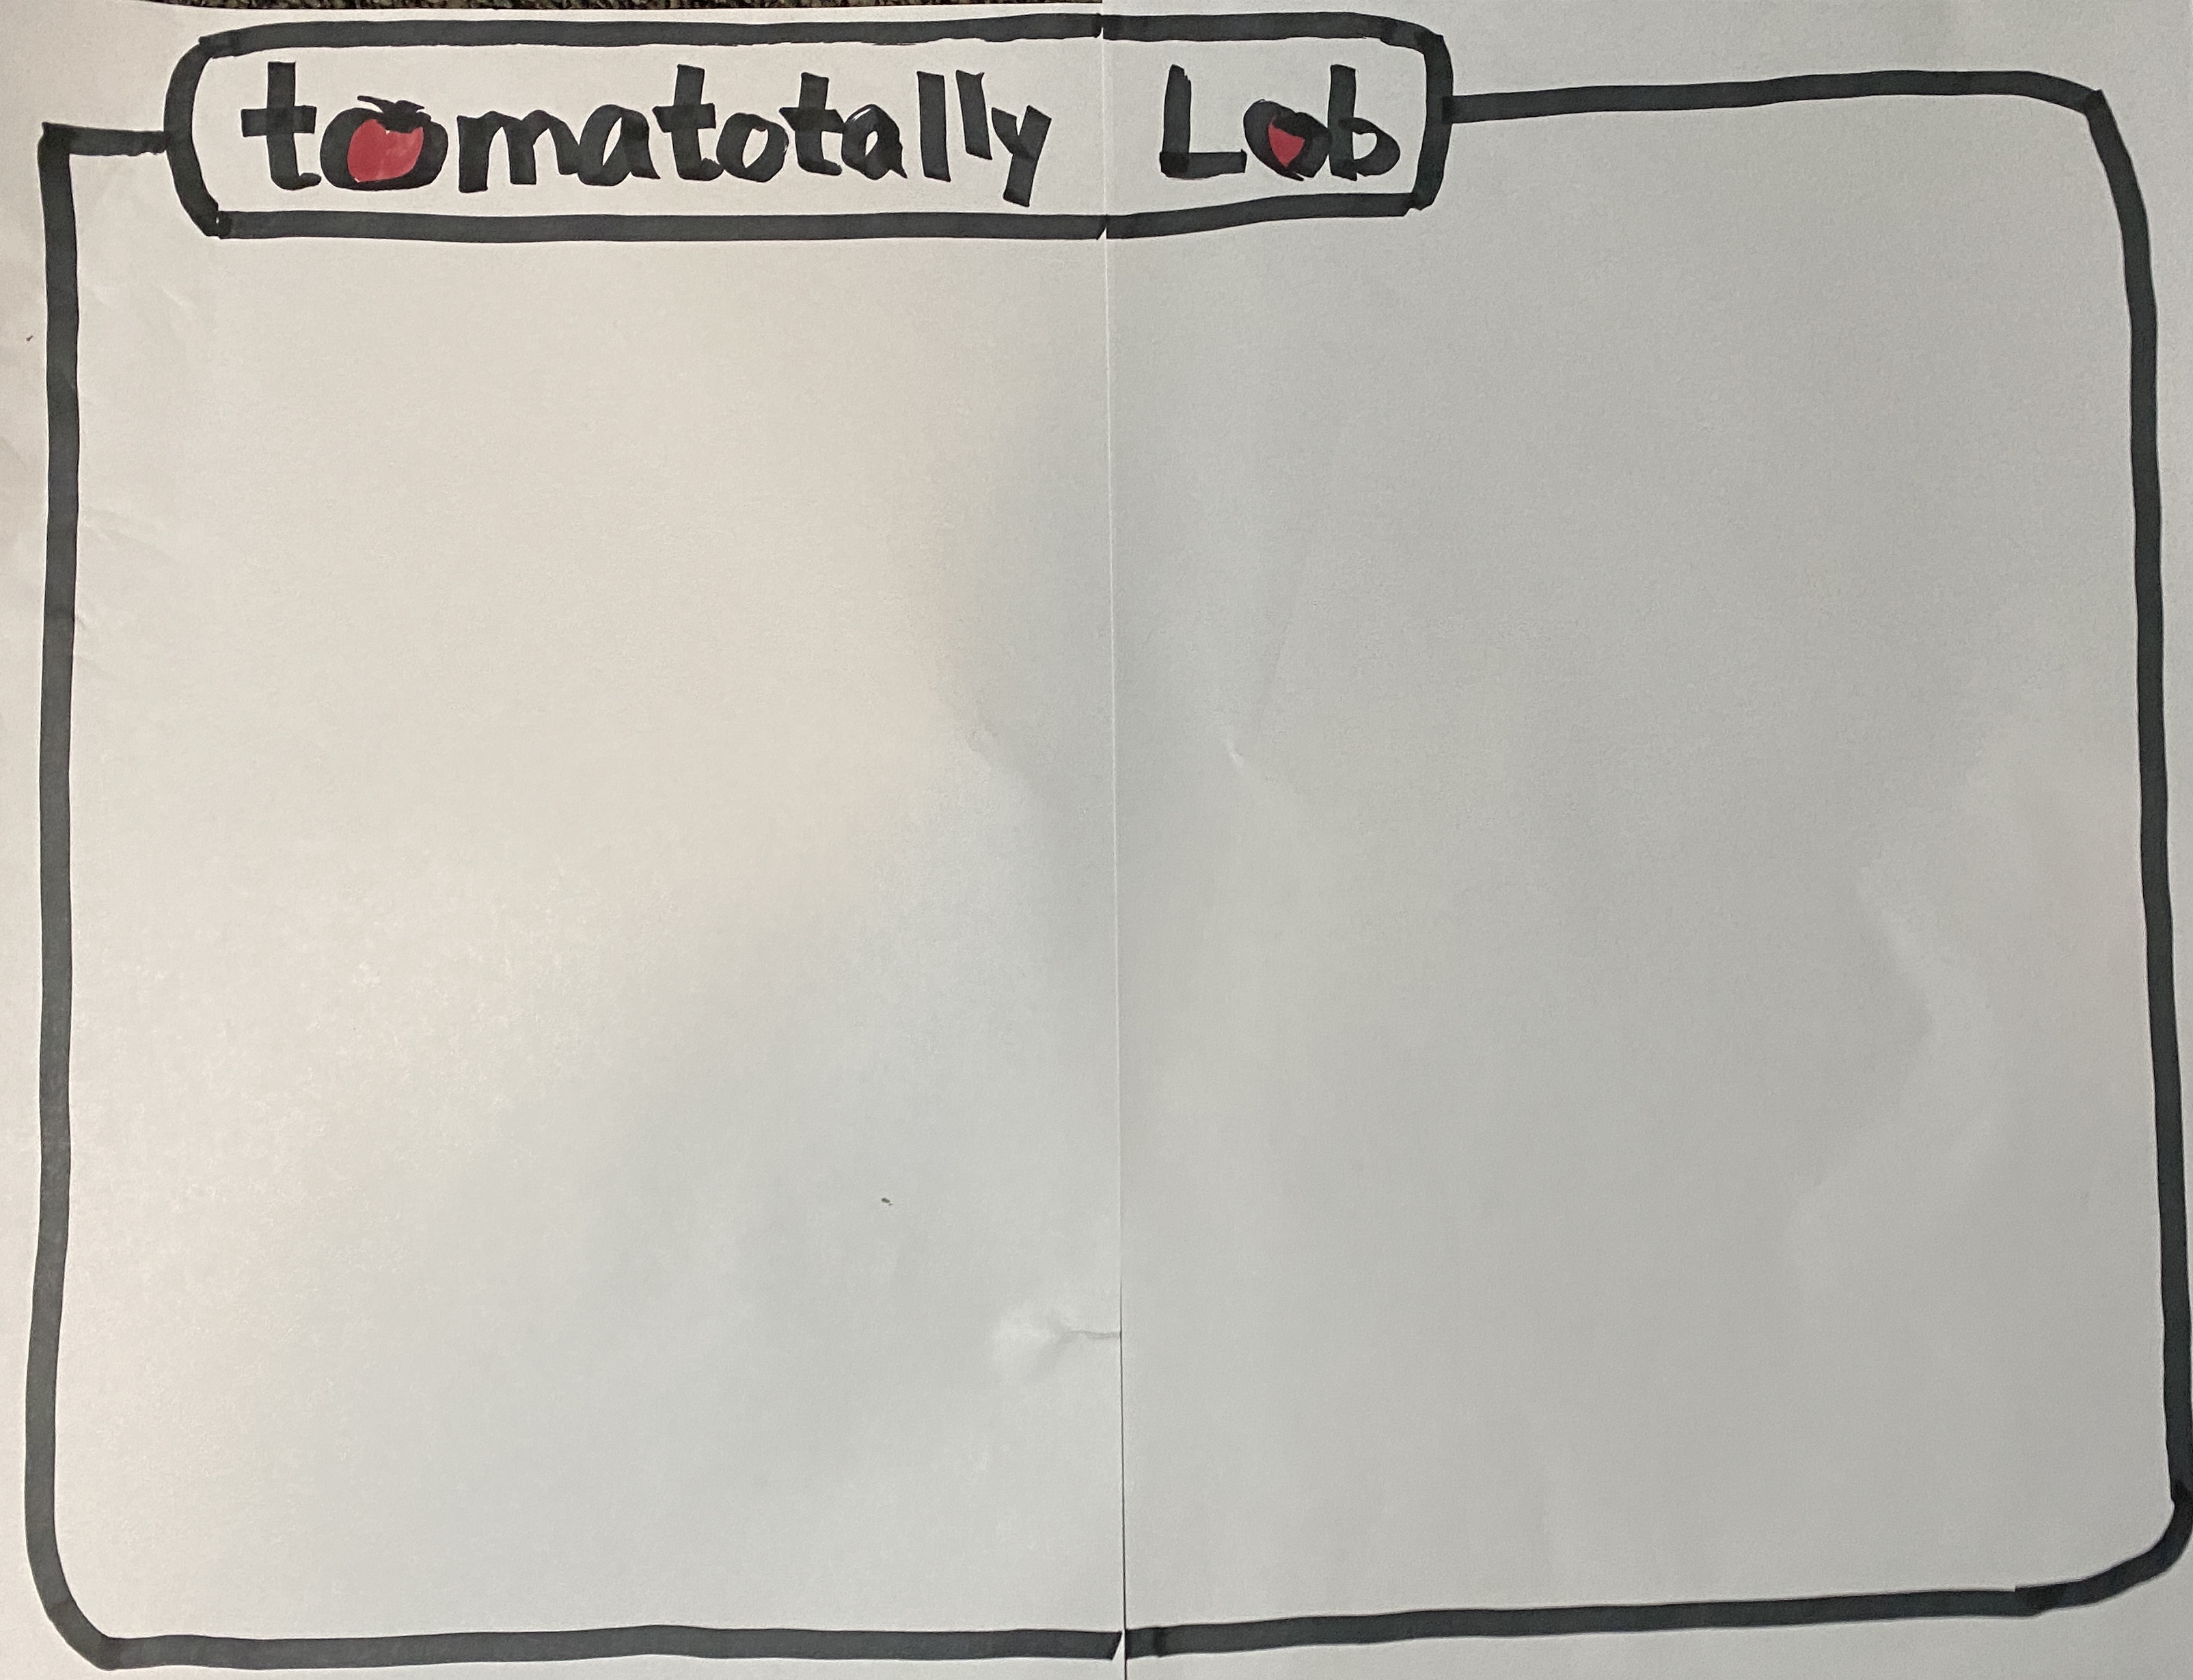 tomatotally Lob